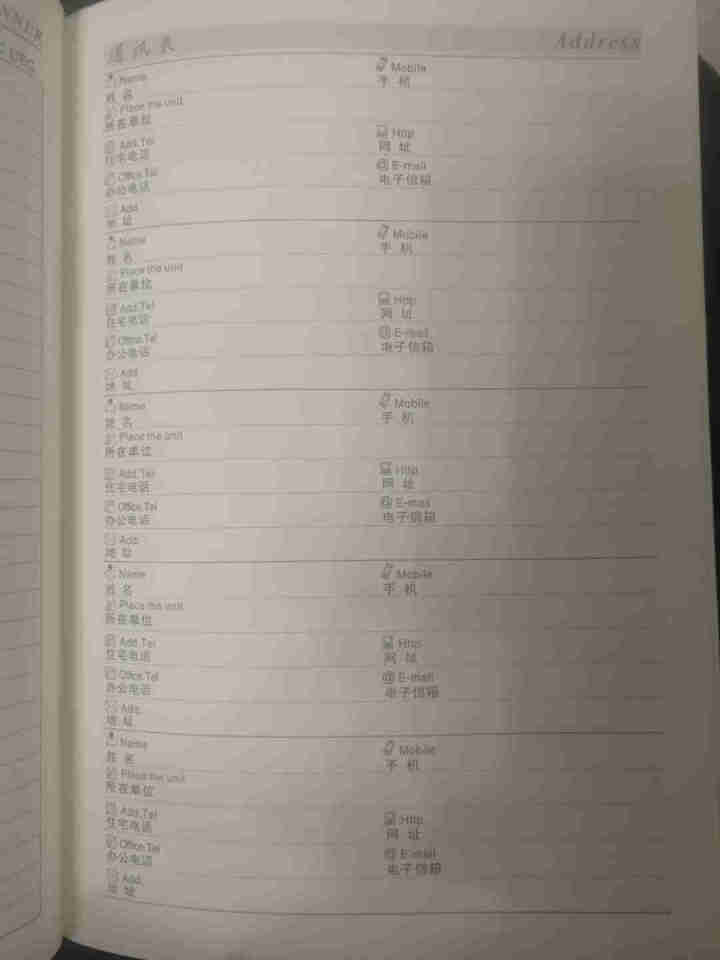 NNER
DEC
通讯表 Address
Name Mobile
姓 名 手 机
Place the unit
所在单位
Add.Tel Http
住宅电话 网 址
Office.Tel @ E-mail
办公电话 电子信箱
Add.
地 址
Name Mobile
姓 名 手 机
Place the unit
所在单位
Add.Tel Http
住宅电话 网 址
Office.Tel @ E-mail
办公电话 电子信箱
Add.
地 址
Name Mobile
姓 名 手 机
Place the unit
所在单位
Add.Tel Http
住宅电话 网 址
Office.Tel @ E-mail
办公电话 电子信箱
Add.
地 址
Name Mobile
姓 名 手 机
Place the unit
所在单位
Add.Tel Http
住宅电话 网 址
Office.Tel @ E-mail
办公电话 电子信箱
Add.
地 址
Name Mobile
姓 名 手 机
Place the unit
所在单位
Add.Tel Http
住宅电话 网 址
Office.Tel @ E-mail
办公电话 电子信箱
Add.
地 址